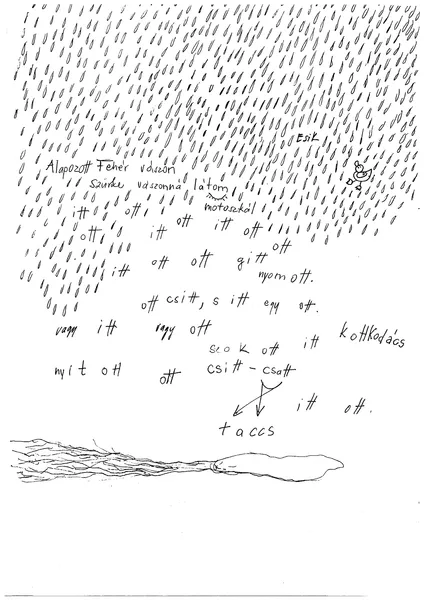 Esik
Alapozott Fehér vászon
szürke vászonná látom
motoszkál
itt ott ott itt ott
ott itt ott
itt ott ott gitt
nyomott.
ott csitt, s itt egy ott.
vagy itt vagy ott itt kottkodács
szok ott
nyitott ott csitt - csatt
itt ott.
taccs